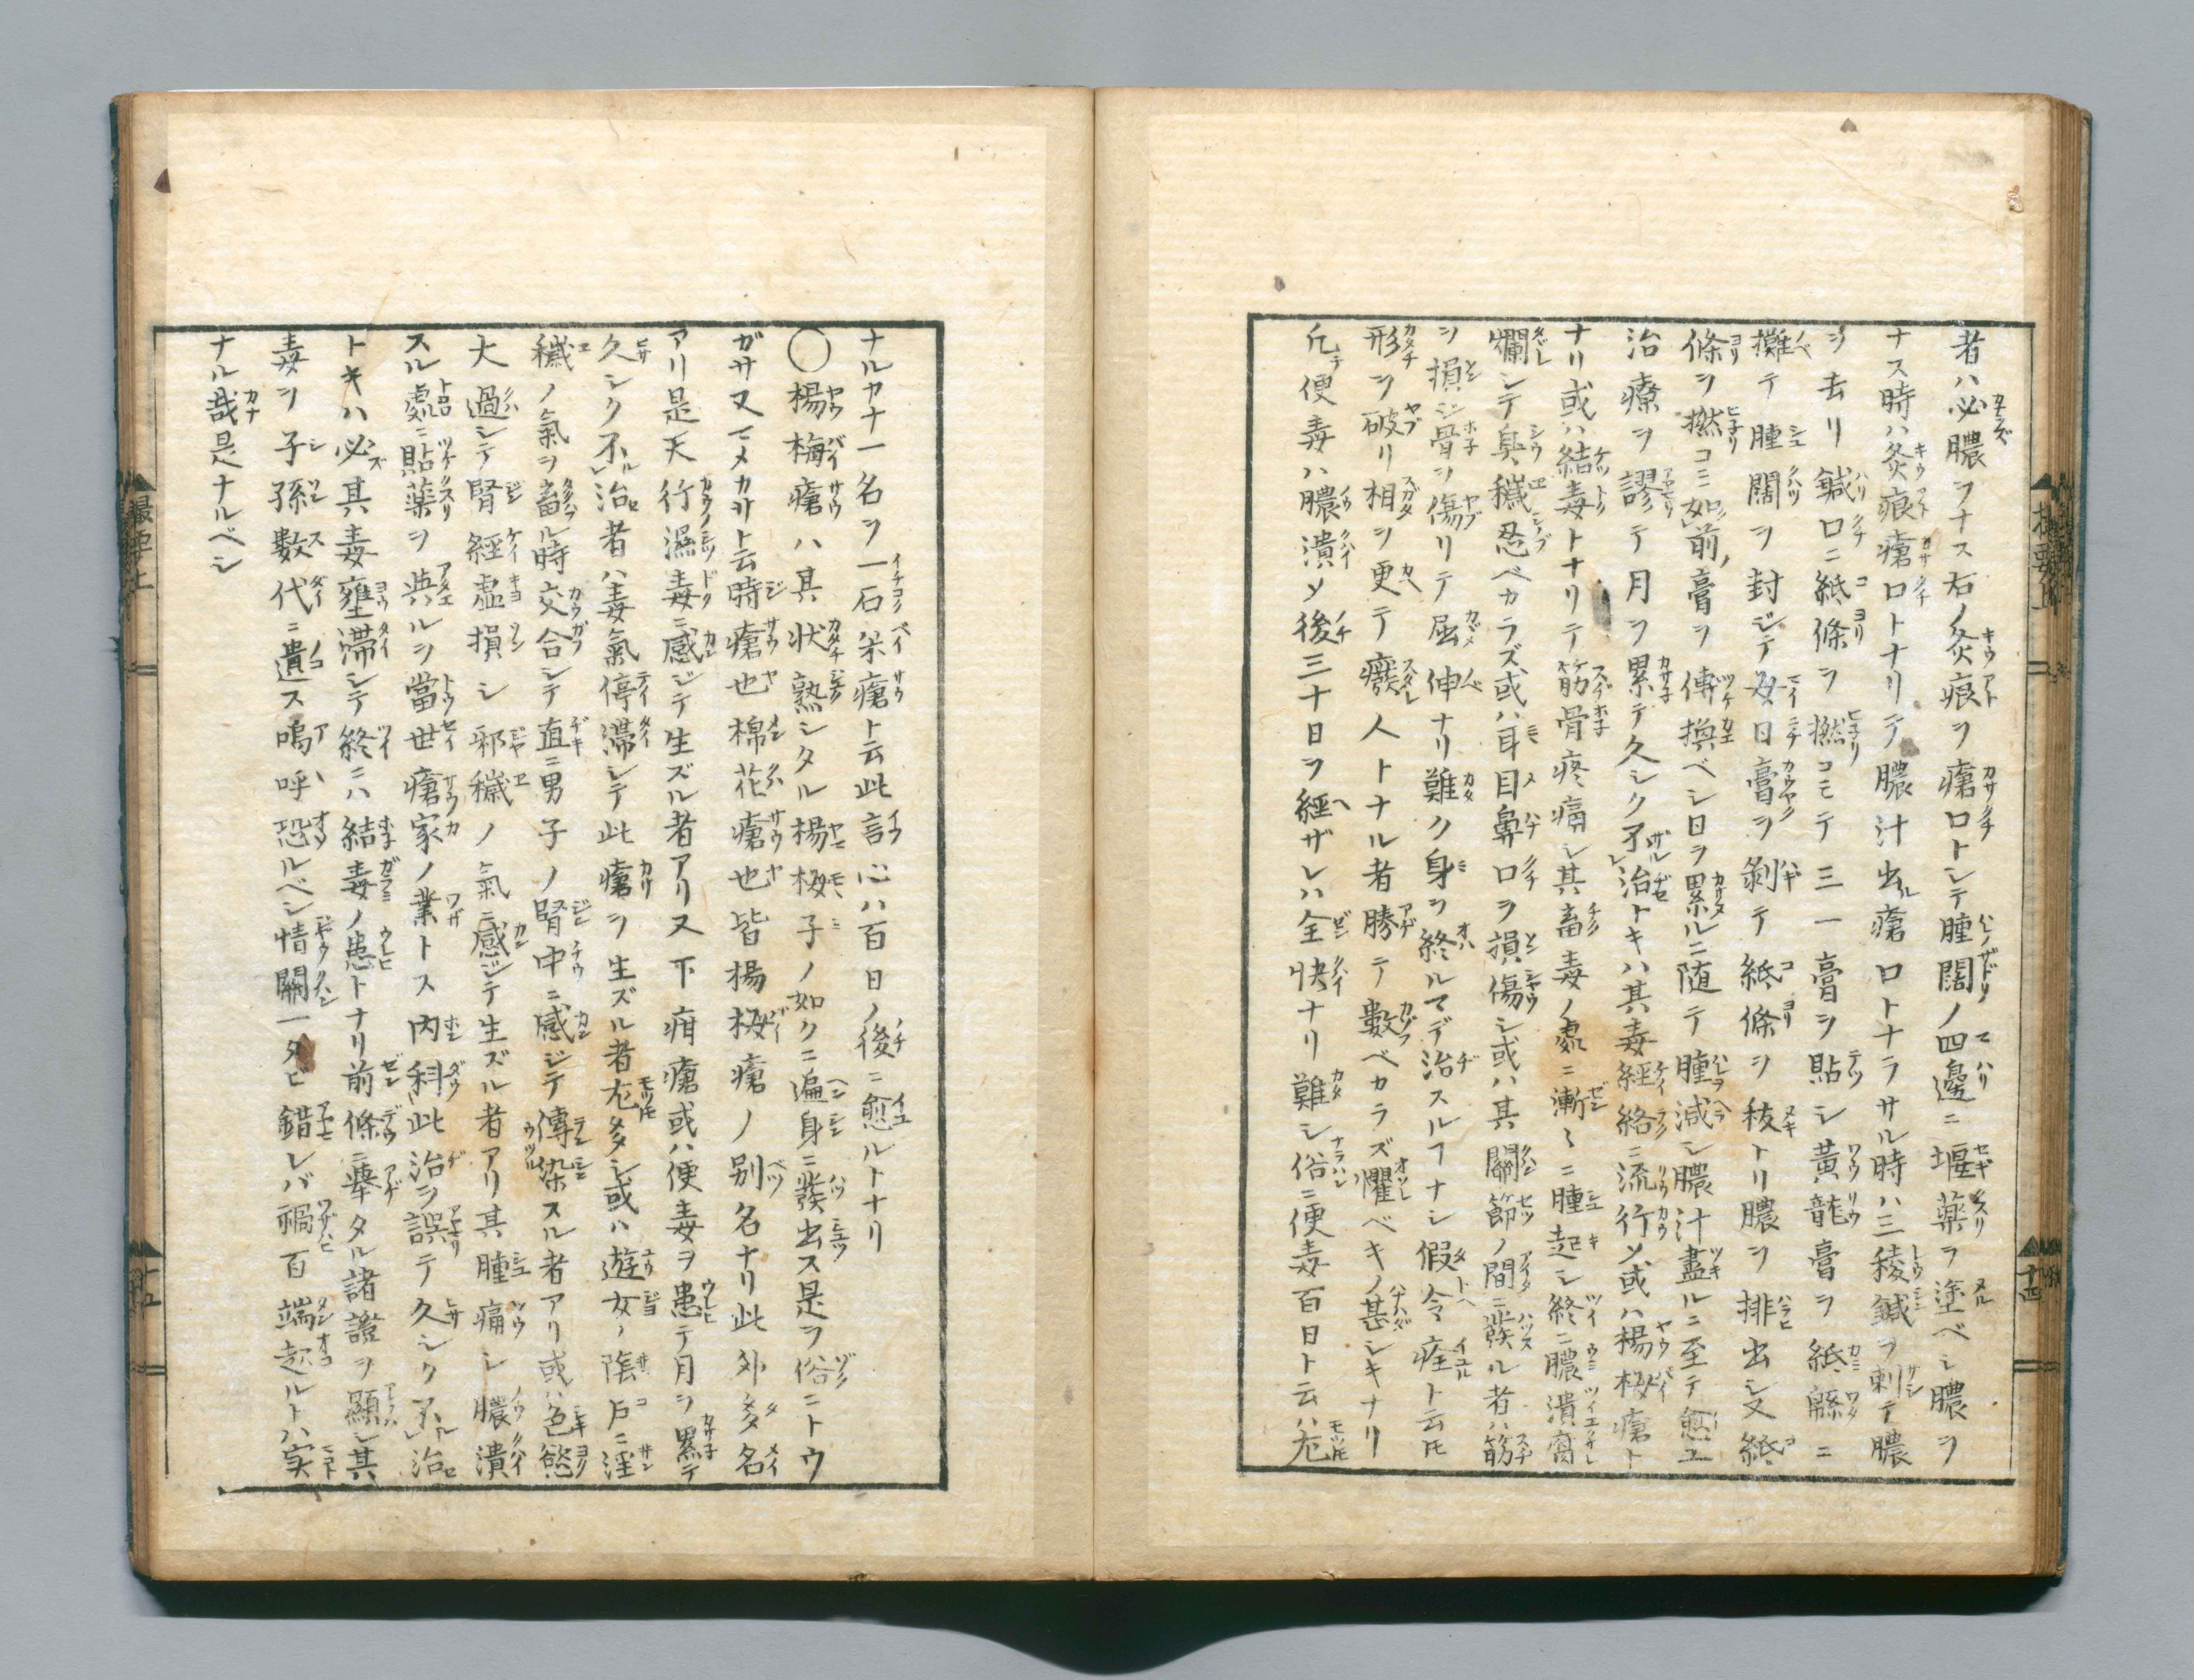 者ハ必膿ヲナス右ノ灸痕ヲ瘡口トシテ腫闊ノ四邊ニ堰薬ヲ塗ベシ膿ヲ
ナス時ハ灸痕瘡口トナリテ膿汁出ル瘡口トナラサル時ハ三稜鍼ヲ刺テ膿
ヲ去リ鍼口ニ紙條ヲ撚コミテ三一膏ヲ貼シ黄龍膏ヲ紙緜ニ
攤テ腫闊ヲ封ジテ毎日膏ヲ剝テ紙條ヲ抜トリ膿ヲ排出シ又紙
條ヲ撚コミ如前膏ヲ傅換ベシ日ヲ累ルニ随テ腫減シ膿汁盡ルニ至テ愈ユ
治療ヲ謬テ月ヲ累テ久シク不治トキハ其毒経絡ニ流行ソ或ハ楊梅瘡ト
ナリ或ハ結毒トナリテ筋骨疼痛シ其畜毒ノ處ニ漸〻ニ腫起シ終ニ膿潰腐
爛シテ臭穢忍ベカラズ或ハ耳目鼻口ヲ損傷シ或ハ其關節ノ間ニ發ル者ハ筋
ヲ損ジ骨ヲ傷リテ屈伸ナリ難ク身ヲ終ルマデ治スルヿナシ假令痊ト云𪜈
形ヲ破リ相ヲ更テ癈人トナル者勝テ數ベカラズ懼ベキノ甚シキナリ
凡テ便毒ハ膿潰メ後三十日ヲ經ザレハ全快ナリ難シ俗ニ便毒百日ト云ハ尤
ナルヤナ一名ヲ一石米瘡ト云此言心ハ百日ノ後ニ愈ルトナリ
〇楊梅瘡ハ其状熟シタル楊梅子ノ如クニ遍身ニ發出ス是ヲ俗ニトウ
ガサ又マメカサト云時瘡也棉花瘡也皆楊梅瘡ノ別名ナリ此外多名
アリ是天行濕毒ニ感ジテ生ズル者アリ又下疳瘡或ハ便毒ヲ患テ月ヲ累テ
久シク不治者ハ毒氣停滞シテ此瘡ヲ生ズル者尤多シ或ハ遊女ノ陰戸ニ淫
穢ノ氣ヲ畜ル時交合シテ直ニ男子ノ腎中ニ感ジテ傳染スル者アリ或ハ色慾
大過シテ腎經虚損シ邪穢ノ氣ニ感ジテ生ズル者アリ其腫痛シ膿潰
スル處ニ貼薬ヲ與ルヲ當世瘡家ノ業トス内科此治ヲ誤テ久シク不治
トキハ必其毒壅滞シテ終ニハ結毒ノ患トナリ前條ニ舉タル諸證ヲ顯シ其
毒ヲ子孫數代ニ遺ス嗚呼恐ルベシ情關一タビ錯レバ禍百端起ルトハ実
ナル哉是ナルベシ